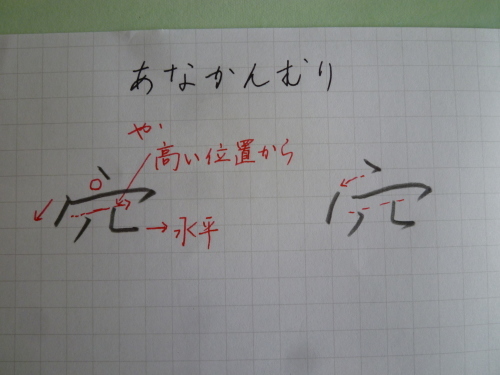 あなかんむり
や、
高い位置から
→水平